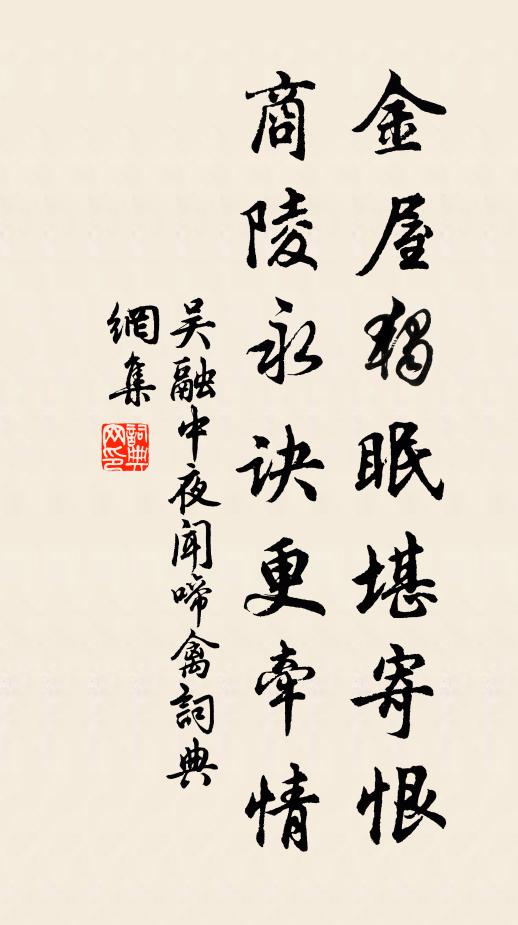 金屋独眠堪寄恨
商陵永诀更牵情
吴融中夜闻啼禽詞典
網集
詞典
网印